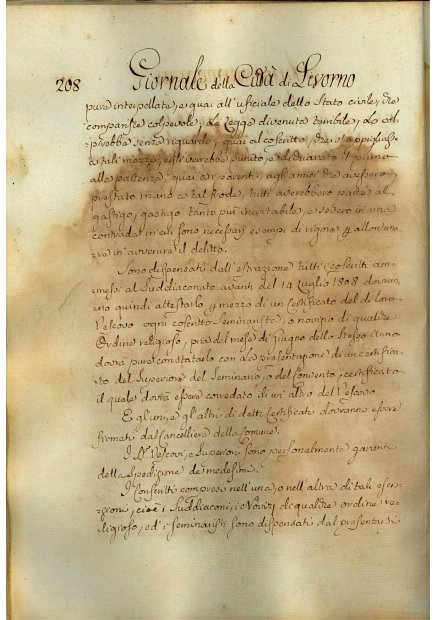 208 Giornale della Città di Livorno
pure interpollata, e guai all'ufiziale dello Stato civile, che
comparisse colpevole, La Legge divenuta terribile, Lo col-
pirebbe senza riguardi, guai al coscritto, che s'appigliasse
a tali mezzi, egli verebbe punito, e dichiarato il primo
alla partenza, guai ai parenti, agli amici che avessero
prestato mano a tal frode, tutti averebbero parte al
gastigo, gastigo tanto più inevitabile e severo in una
contrada in cui sono necessarj esempi di rigore p allontana-
re in avvenire il delitto.
Sono dispensati dall'estrazione tutti i coscritti am-
messi al Suddiaconato avanti del 14 Luglio 1808 dovran-
no quindi attestarlo p mezzo di un Certificato del di loro
Vescovo ogni coscritto seminarista, o novizio di qualche
Ordine religioso, pria del mese di Giugno dello stesso Anno
dovrà pure constatarlo con la presentazione di un certifica-
to del Superiore del Seminario, o del Convento, certificato
il quale dovrà essere corredato di un' altro del Vescovo.
E gl'uni, e gl'altri di detti Certificati dovranno essere
firmati dal Cancelliere della Comune.
I SS.ri Vescovi, e Superiori sono personalmente garanti
della spedizione de medesimi.
I Coscritti compresi nell'una, o nell'altra di tali esen-
zioni, cioè i Suddiaconi, i Novizi di qualche ordine re-
ligioso, ed i seminaristi sono dispensati dal presentarsi